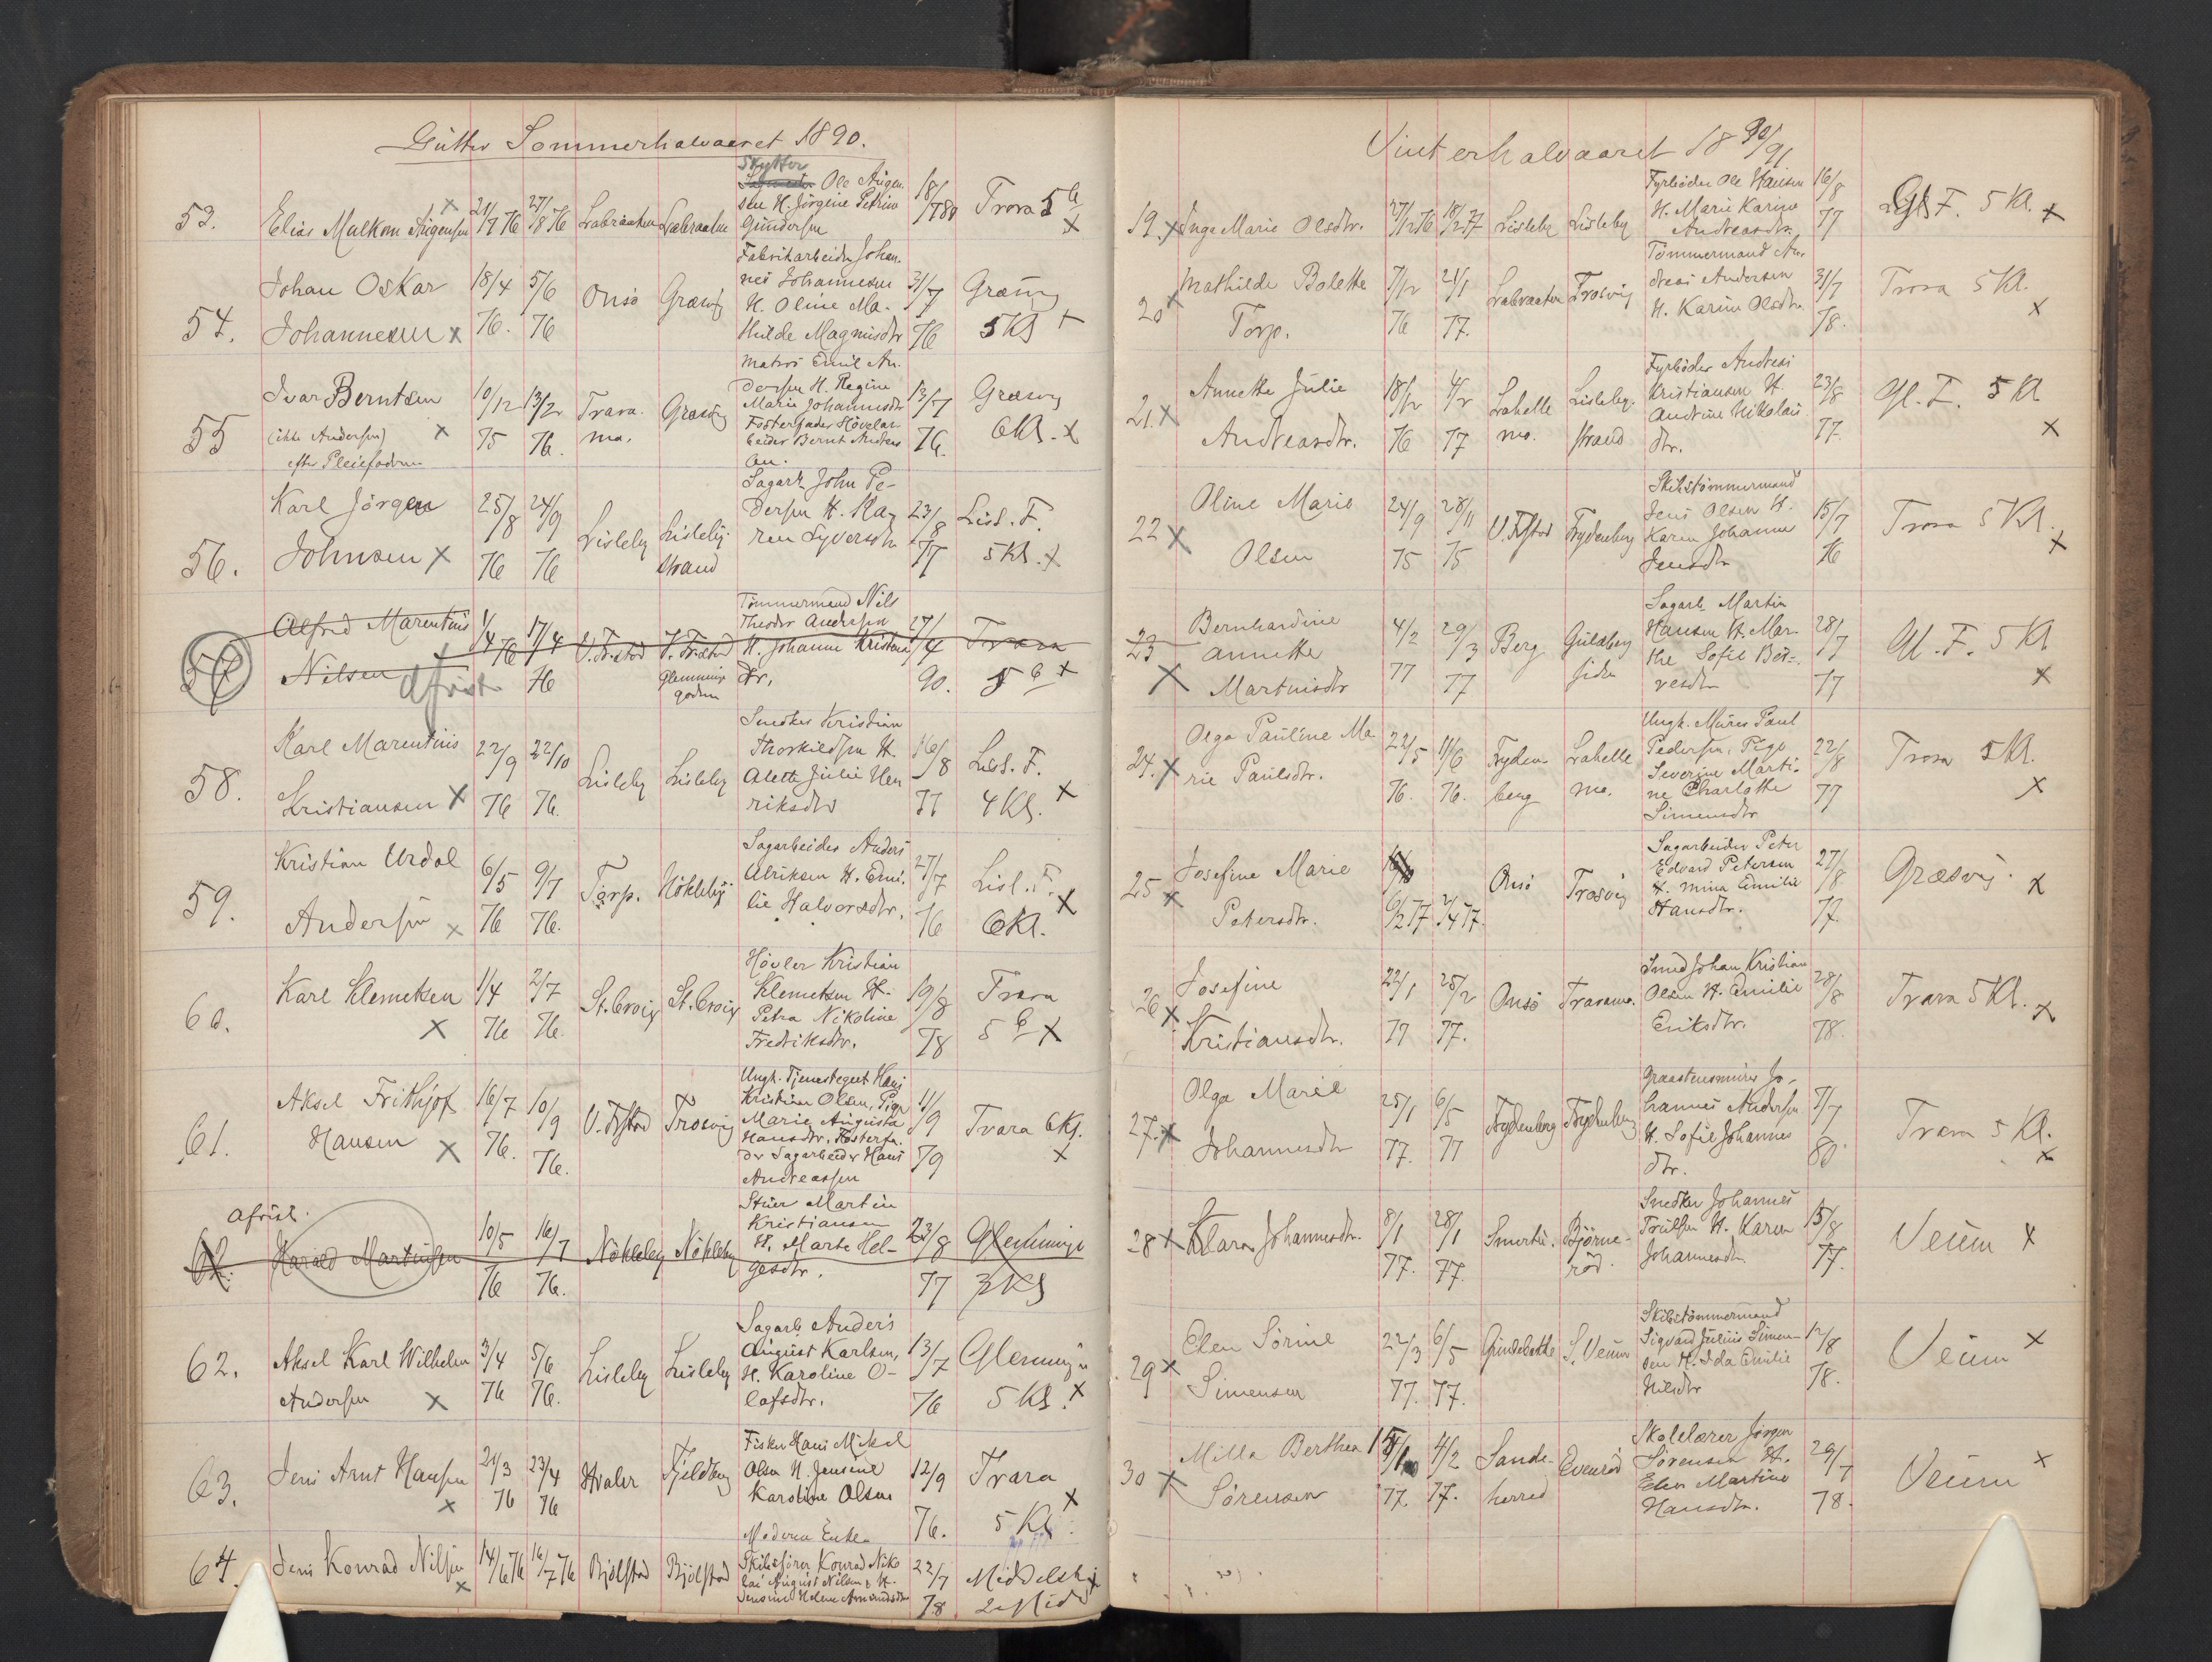 Gutter Sommerhalvaaret 1890.
53. Elias Malkom Augensen x 21/7 76 27/8 76 Labraaten Labraaten
Skytter
Ole Augen-
sen H. Jörgine Petrine
Gundersen
18/7 80 Trara 5 Kl x
54. Johan Oskar
Johannesen x
18/4 76. 5/6 76 Onsö Græsvig
Fabrikarbeider Johan-
nes Johannesen
H. Oline Ma-
thilde Magnusdtr
31/7 76 Græsvig
5 Kl x
55 Ivar Berntsen
(ikke Andersen) x
efter Pleiefaderen
10/12 75 13/2 76. Trara-
mo. Græsvig
Matros Emil An-
dersen H. Regine
Marie Johannesdtr
Fosterfader Høvelar-
beider Bernt Andreas-
en.
13/7 76. Græsvig
6 Kl. x
56. Karl Jörgen
Johnsen x
25/8 76 24/9 76 Lisleby Lisleby-
strand
Sagarb. John Pe-
dersen H. Ka-
ren Syversdtr
23/8 77 Lisl. F.
5 Kl. x
57 Alfred Marentius
Nilsen afreist
1/4 76 17/4 76 V. Fr.stad V. Fr.stad
Glemminge
goden
Tömmermand Nils
Theodor Andersen
H. Johanne Kristens
dtr.
27/4 90. Trara
5 Kl x
58. Karl Marentius
Kristiansen x
22/9 76 22/10 76. Lisleby Lisleby
Snedker Kristian
Thorkildsen H.
Alette Julie Hen
riksdtr
16/8 77 Lisl. F.
4 Kl. x
59. Kristian Urdal
Andersen x
6/5 76 9/7 76. Torp. Nökleby
Sagarbeider Anders
Alriksen H. Emi-
lie Halvorsdtr.
27/7 76 Lisl. F. x
6 Kl.
60. Karl Klemetsen
x
1/4 76 2/7 76. St. Croix St. Croix
Hövler Kristian
Klemetsen H.
Petra Nikoline
Fredriksdtr.
19/8 78 Trara
5 Kl x
61. Aksel Frithjof
Hansen x
16/7 76. 10/9 76. V. Frstad Trosvig
Ungk. Tjenestegut Hans
Kristian Olsen, Pige
Marie Augusta
Hansdtr, Fosterfa-
der Sagarbeider Hans
Andreassen
11/9 79 Trara 6 Kl.
x
afreist.
62. Harald Martinsen
10/5 76 16/7 76. Nökleby Nökleby
Stuer Martin
Kristiansen
H. Marte Hel-
gesdtr.
23/8 77 Glemminge
3 Kl
62. Aksel Karl Wilhelm
Andersen x
3/4 76 5/6 76. Lisleby Lisleby
Sagarb Anders
August Karlsen,
H. Karoline O-
lafsdtr.
13/7 76 Glemminge
5 Kl. x
63. Jens Arnt Hansen
x
21/3 76 23/4 76 Hvaler Fjeldberg
Fisker Hans Mikal
Olsen H. Jensine
Karoline Olsen
12/9 76. Trara
5 Kl. x
64. Jens Konrad Nilsen
x
14/6 76 16/7 76 Bjölstad Bjölstad
Moderen Enke
Skibsförer Konrad Niko
lai August Nilsen & H.
Jensine Helene Amundsdtr
22/7 78 Middelsk. x
2 Mid
Vinterhalvaaret 1890/91
19. x Inga Marie Olsdtr. 27/12 76 18/2 77 Lisleby Lisleby
Fyrböder Ole Hansen
H. Marie Karine
Andreasdtr.
16/8 77 Gl. F. 5 Kl. x
20 x Mathilde Bolette
Torp.
7/12 76 21/1 77. Labraaten Trosvig
Tömmermand An-
dreas Andersen
H. Karine Olsdtr.
31/7 78. Trara 5 Kl.
x
21. x Annette Julie
Andreasdtr.
18/12 76 4/2 77 Labelle
mo. Lisleby-
strand
Fyrböder Andreas
Kristiansen H.
Andrine Nikolais
dtr.
23/8 77. Gl. F. 5 Kl
x
22 x Oline Marie
Olsen
24/9 75 28/11 75 V. Frstad Frydenberg
Skibstömmermand
Jens Olsen H.
Karen Johanne
Jensdtr
15/7 76 Trara 5 Kl.
x
23 x Bernhardine
Annette
Martinsdtr
4/2 77 29/3 77 Berg Guldberg
siden
Sagarb. Martin
Hansen H. Mar-
the Sofie Bör-
resdtr
28/7 77 Gl. F. 5 Kl
x
24. x Olga Pauline Ma
rie Paulsdtr.
22/5 76. 11/6 76. Fryden-
berg Labelle
mo.
Ungk. Murer Paul
Pedersen, Pige
Severine Marti-
ne Charlotte
Simensdtr
22/8 77 Trara 5 Kl.
x
25 x Josefine Marie
Petersdtr.
6/2 77 2/4 77. Onsö Trosvig
Sagarbeider Peter
Edvard Petersen
H. Mina Emilie
Hansdtr.
27/8 77. Græsvig. x
26 x Josefine
Kristiansdtr.
22/1 77 25/2 77. Onsö Traramo.
Smed Johan Kristian
Olsen H. Emilie
Eriksdtr.
28/8 78. Trara 5 Kl. x
27. x Olga Marie
Johannesdtr
25/1 77. 6/5 77 Frydenberg Frydenberg
Graastensmurer Jo-
hannes Andersen
H. Sofie Johannes
dtr.
7/7 80. Trara 5 Kl.
x
28 x Klara Johannesdtr. 8/1 77. 28/1 77. Smertu. Björne-
röd.
Snedker Johannes
Trulsen H. Karen
Johannesdtr.
15/8 77. Veum x
29 x Elen Sörine
Simensen
22/3 77. 6/5 77. S. Veum
Skibstömmermand
Sigvard Julius Simen-
sen H. Ida Emilie
Nilsdtr
12/8 78. Veum x
30 x Milla Berthea
Sörensen
77. 4/2 77. Sande-
herred Evenröd
Skolelærer Jörgen
Sörensen H.
Elen Martine
Hansdtr.
29/7 78. Veum x